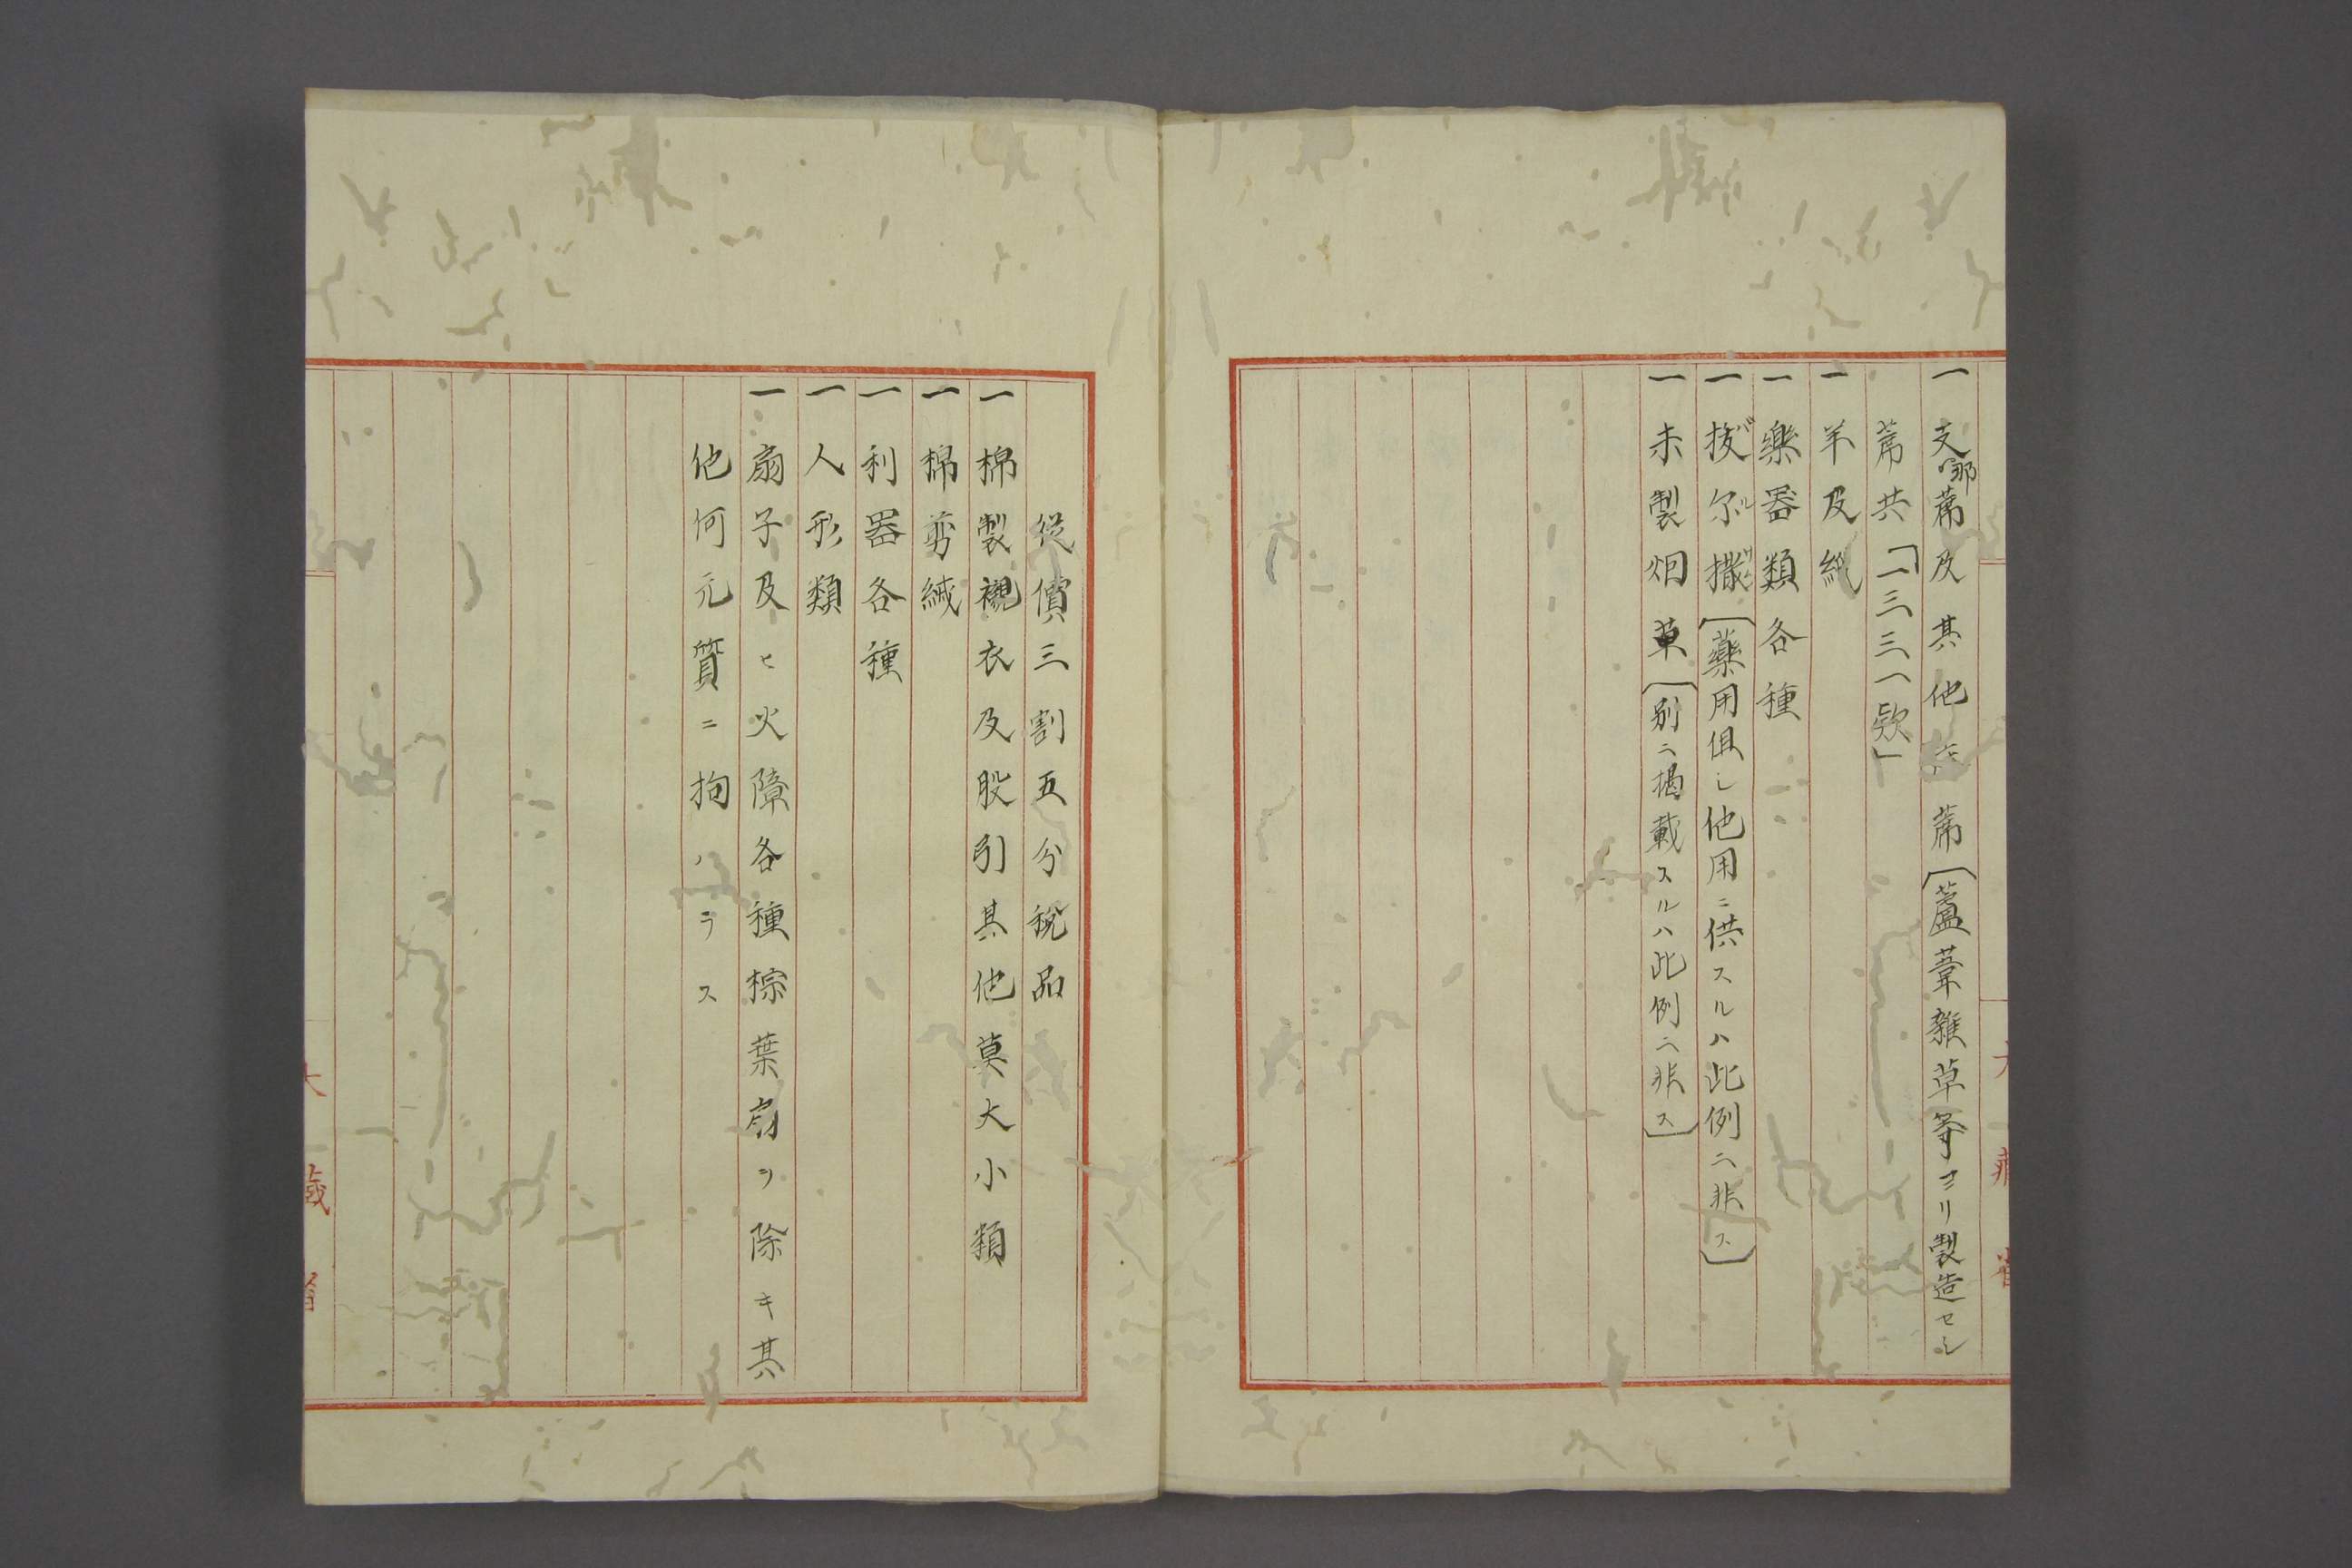 一支那蓆及其他ノ蓆〔蘆葦雑草等ヨリ製造セシ
蓆共「一三三一欵」
一羊及綿
一楽器類各種
一抜尓撒〔藥用俱シ他用ニ供スルハ此例ニ非ス〕
一未製烟草〔別ニ掲載スルハ此例ニ非ス〕
從價三割五分税品
一棉製襯衣及股引其他莫大小類
一棉剪絨
一利器各種
一人形類
一扇子及ヒ火障各種棕葉扇ヲ除キ其
他何元質ニ拘ハラス
大藏省